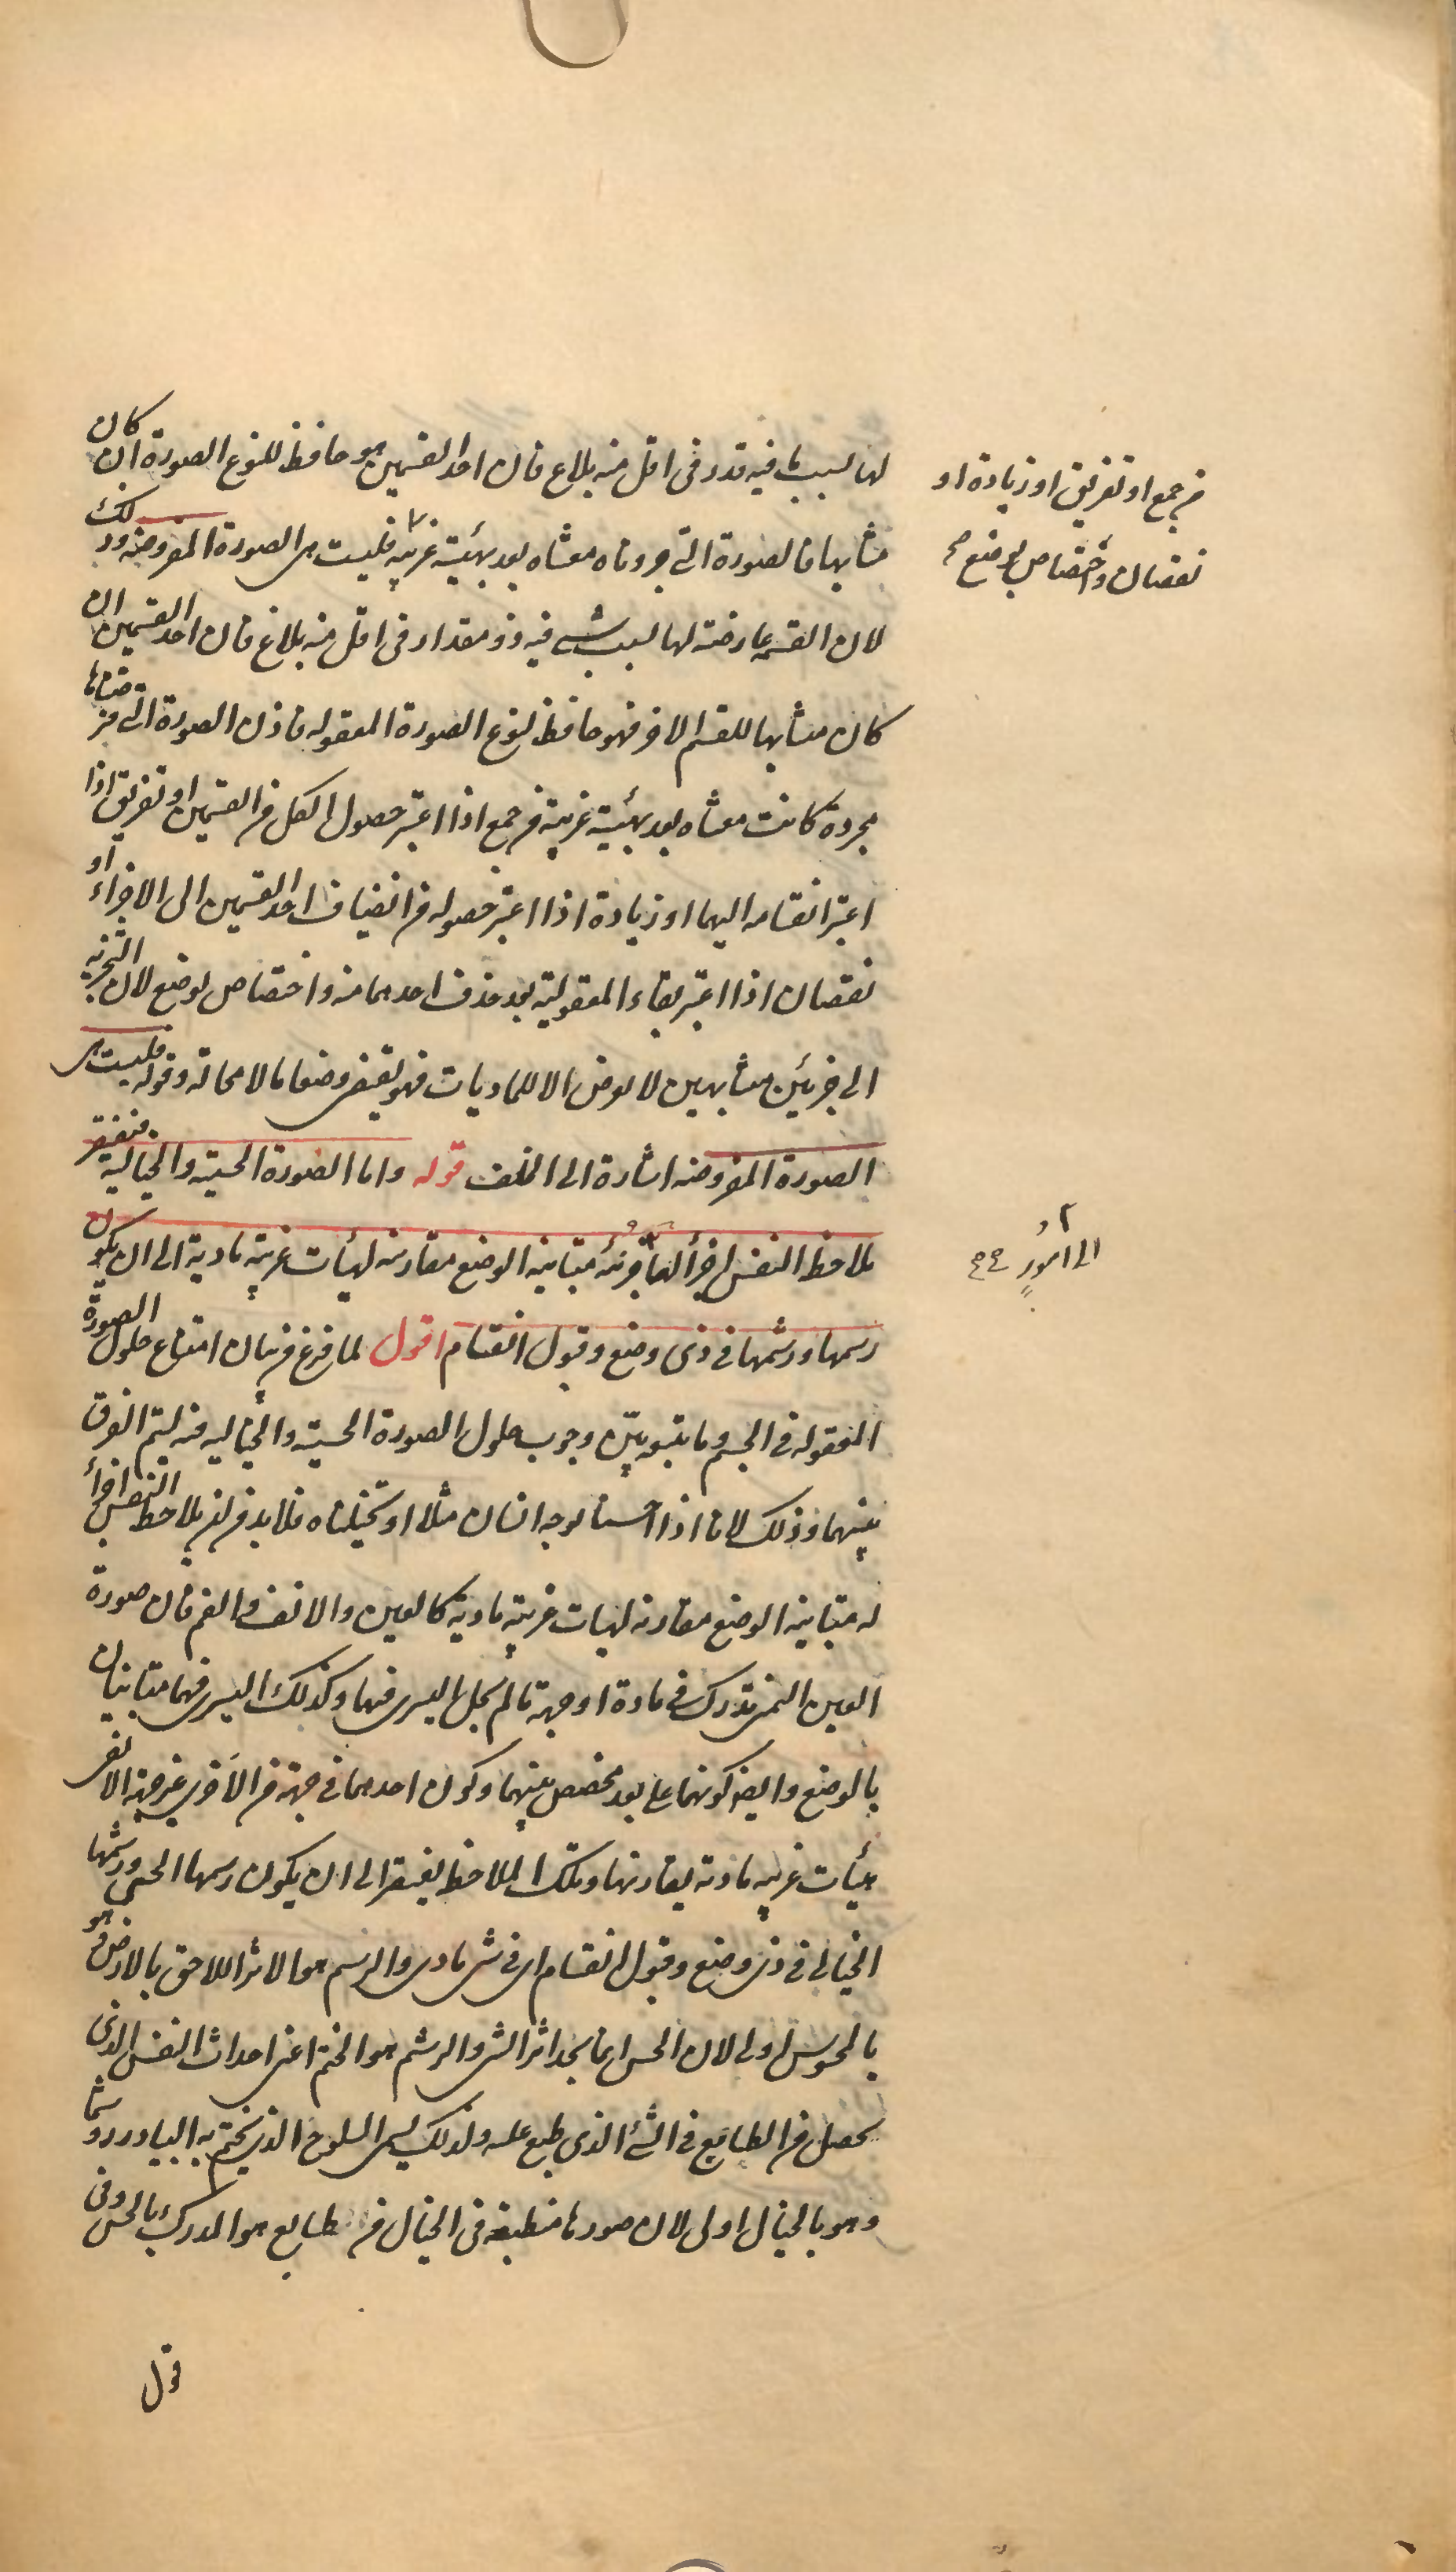 لها بسبب ما فيه قدر فى اقل منه بلاغ فان احد القسمين هو حافظ لنوع الصورة ان كان
متشابها فالصورة التى جردناه مغشاه بعد بهيئة غريبه فليست هى الصورة المفروضه وذلك
لان القسمة عارضة لها بسبب شىء فيه ذو مقدار فى اقل منه بلاغ فان احد القسمين ان
كان متشابها للقسم الاخر فهو حافظ لنوع الصورة المعقوله فاذن الصورة التى فرضناها
مجردة كانت مغشاه بعد بهيئة غريبة من جمع اذا اعتبر حصول الكل من القسمين او تفريق اذا
اعتبر انقسامه اليهما او زيادة اذا اعتبر حصوله من انضياف احد القسمين الى الاجزاء او
نقصان اذا اعتبر بقاء المعقولية بعد حذف احدهما منه واختصاص بوضع لان التجزيه
الى جزئين متشابهين لا يعرض الا للماديات فهو يقتضى وضعا ما لا محالة وقوله فليست هى
الصورة المفروضه اشارة الى الخلف قوله واما الصورة الحسية والخيالية فتفتقر
ملاحظة النفس اجزأ لها جزئية متباينة الوضع مقارنة لهيأت غريبة مادية الى ان يكون
رسمها ورشمها فى ذى وضع وقبول انقسام اقول لما فرغ من بيان امتناع حلول الصورة
المعقوله فى الجسم وما يتبعه بيّن وجوب حلول الصورة الحسية والخياليه فيه ليتم الفرق
بينهما وذلك لانا اذا احسسنا بوجه انسان مثلا او تخيلناه فلا بد من ان يلاحظ النفس اجزأ
له متباينة الوضع مقارنة لهيات غريبة مادية كالعين والانف والفم فان صورة
العين اليمنى تدرك فى مادة او جهة ما لم يحل اليسرى فيها وكذلك اليسرى فهما متباينان
بالوضع وايضا كونهما على بعد مخصص بينهما وكون احدهما فى جهة من الاخرى غير جهة الاخرى
هيأت غريبه مادية يقارنها وتلك الملاحظة يفتقر الى ان يكون رسمها الحسى ورشمها
الخيالى فى ذى وضع وقبول انقسام اى فى شى مادى والرسم هو الاثر اللاحق بالارض وهو
بالمحسوس اولى لان الحس انما يجد اثر الشى والرشم هو الختم اعنى احداث النقش الذى
يحصل من الطابع فى الشئ الذى طبع عليه ولذلك يسمى اللوح الذى يختم به البيادر روشما
وهو بالخيال اولى لان صورها منطبعة فى الخيال من طابع هو المدرك بالحس وفى
قول
من جمع او تفريق او زيادة او
نقصان واختصاص بوضع صح
الى امورٍ